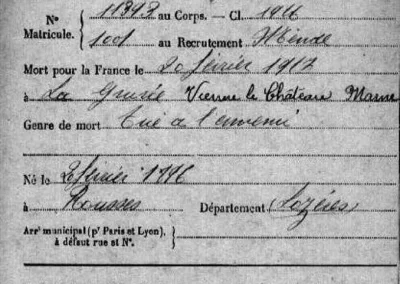 Nº
Matricule.
11398 au Corps. — Cl. 1916
1001 au Recrutement Mende
Mort pour la France le 20 février 1917
à La Gruerie Vienne le Château Marne
Genre de mort Tué à l'ennemi
Né le 2 février 1896
à Rousses Département Lozère
Arrᵗ municipal (pʳ Paris et Lyon),
à défaut rue et Nº.